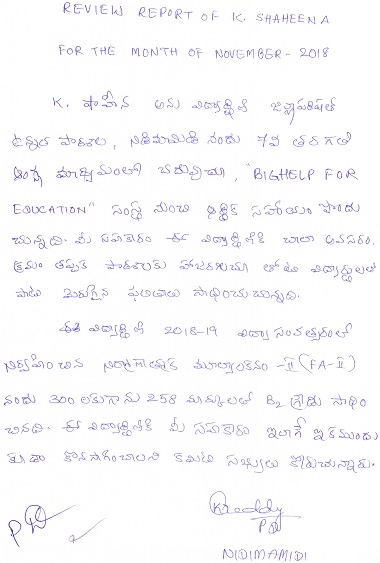 REVIEW REPORT OF K. SHAHEENA
FOR THE MONTH OF NOVEMBER - 2018
K. షాహీన అను విద్యార్థిని జిల్లాపరిషత్
ఉన్నత పాఠశాల, నిడిమామిడి నందు 7వ తరగతి
ఆంగ్ల మాధ్యమంలో చదువుచూ, "BIGHELP FOR
EDUCATION" సంస్థ నుంచి ఆర్థిక సహాయం పొందు
చున్నది. మీ సహకారం ఈ విద్యార్థినికి చాలా అవసరం.
క్రమం తప్పక పాఠశాలకు హాజరగుచూ తోటి విద్యార్థులతో
పాటు మెరుగైన ఫలితాలు సాధించుచున్నది.
ఈ విద్యార్థిని 2018-19 విద్యా సంవత్సరంలో
నిర్వహించిన నిర్మాణాత్మక మూల్యాంకనం -II (FA-II)
నందు 300 లకుగాను 258 మార్కులతో B2 గ్రేడు సాధిం
చినది. ఈ విద్యార్థినికి మీ సహకారం ఇలాగే ఇకముందు
కూడా కొనసాగించాలని కమిటి సభ్యులు కోరుచున్నారు.
KReddy
PD
NIDIMAMIDI